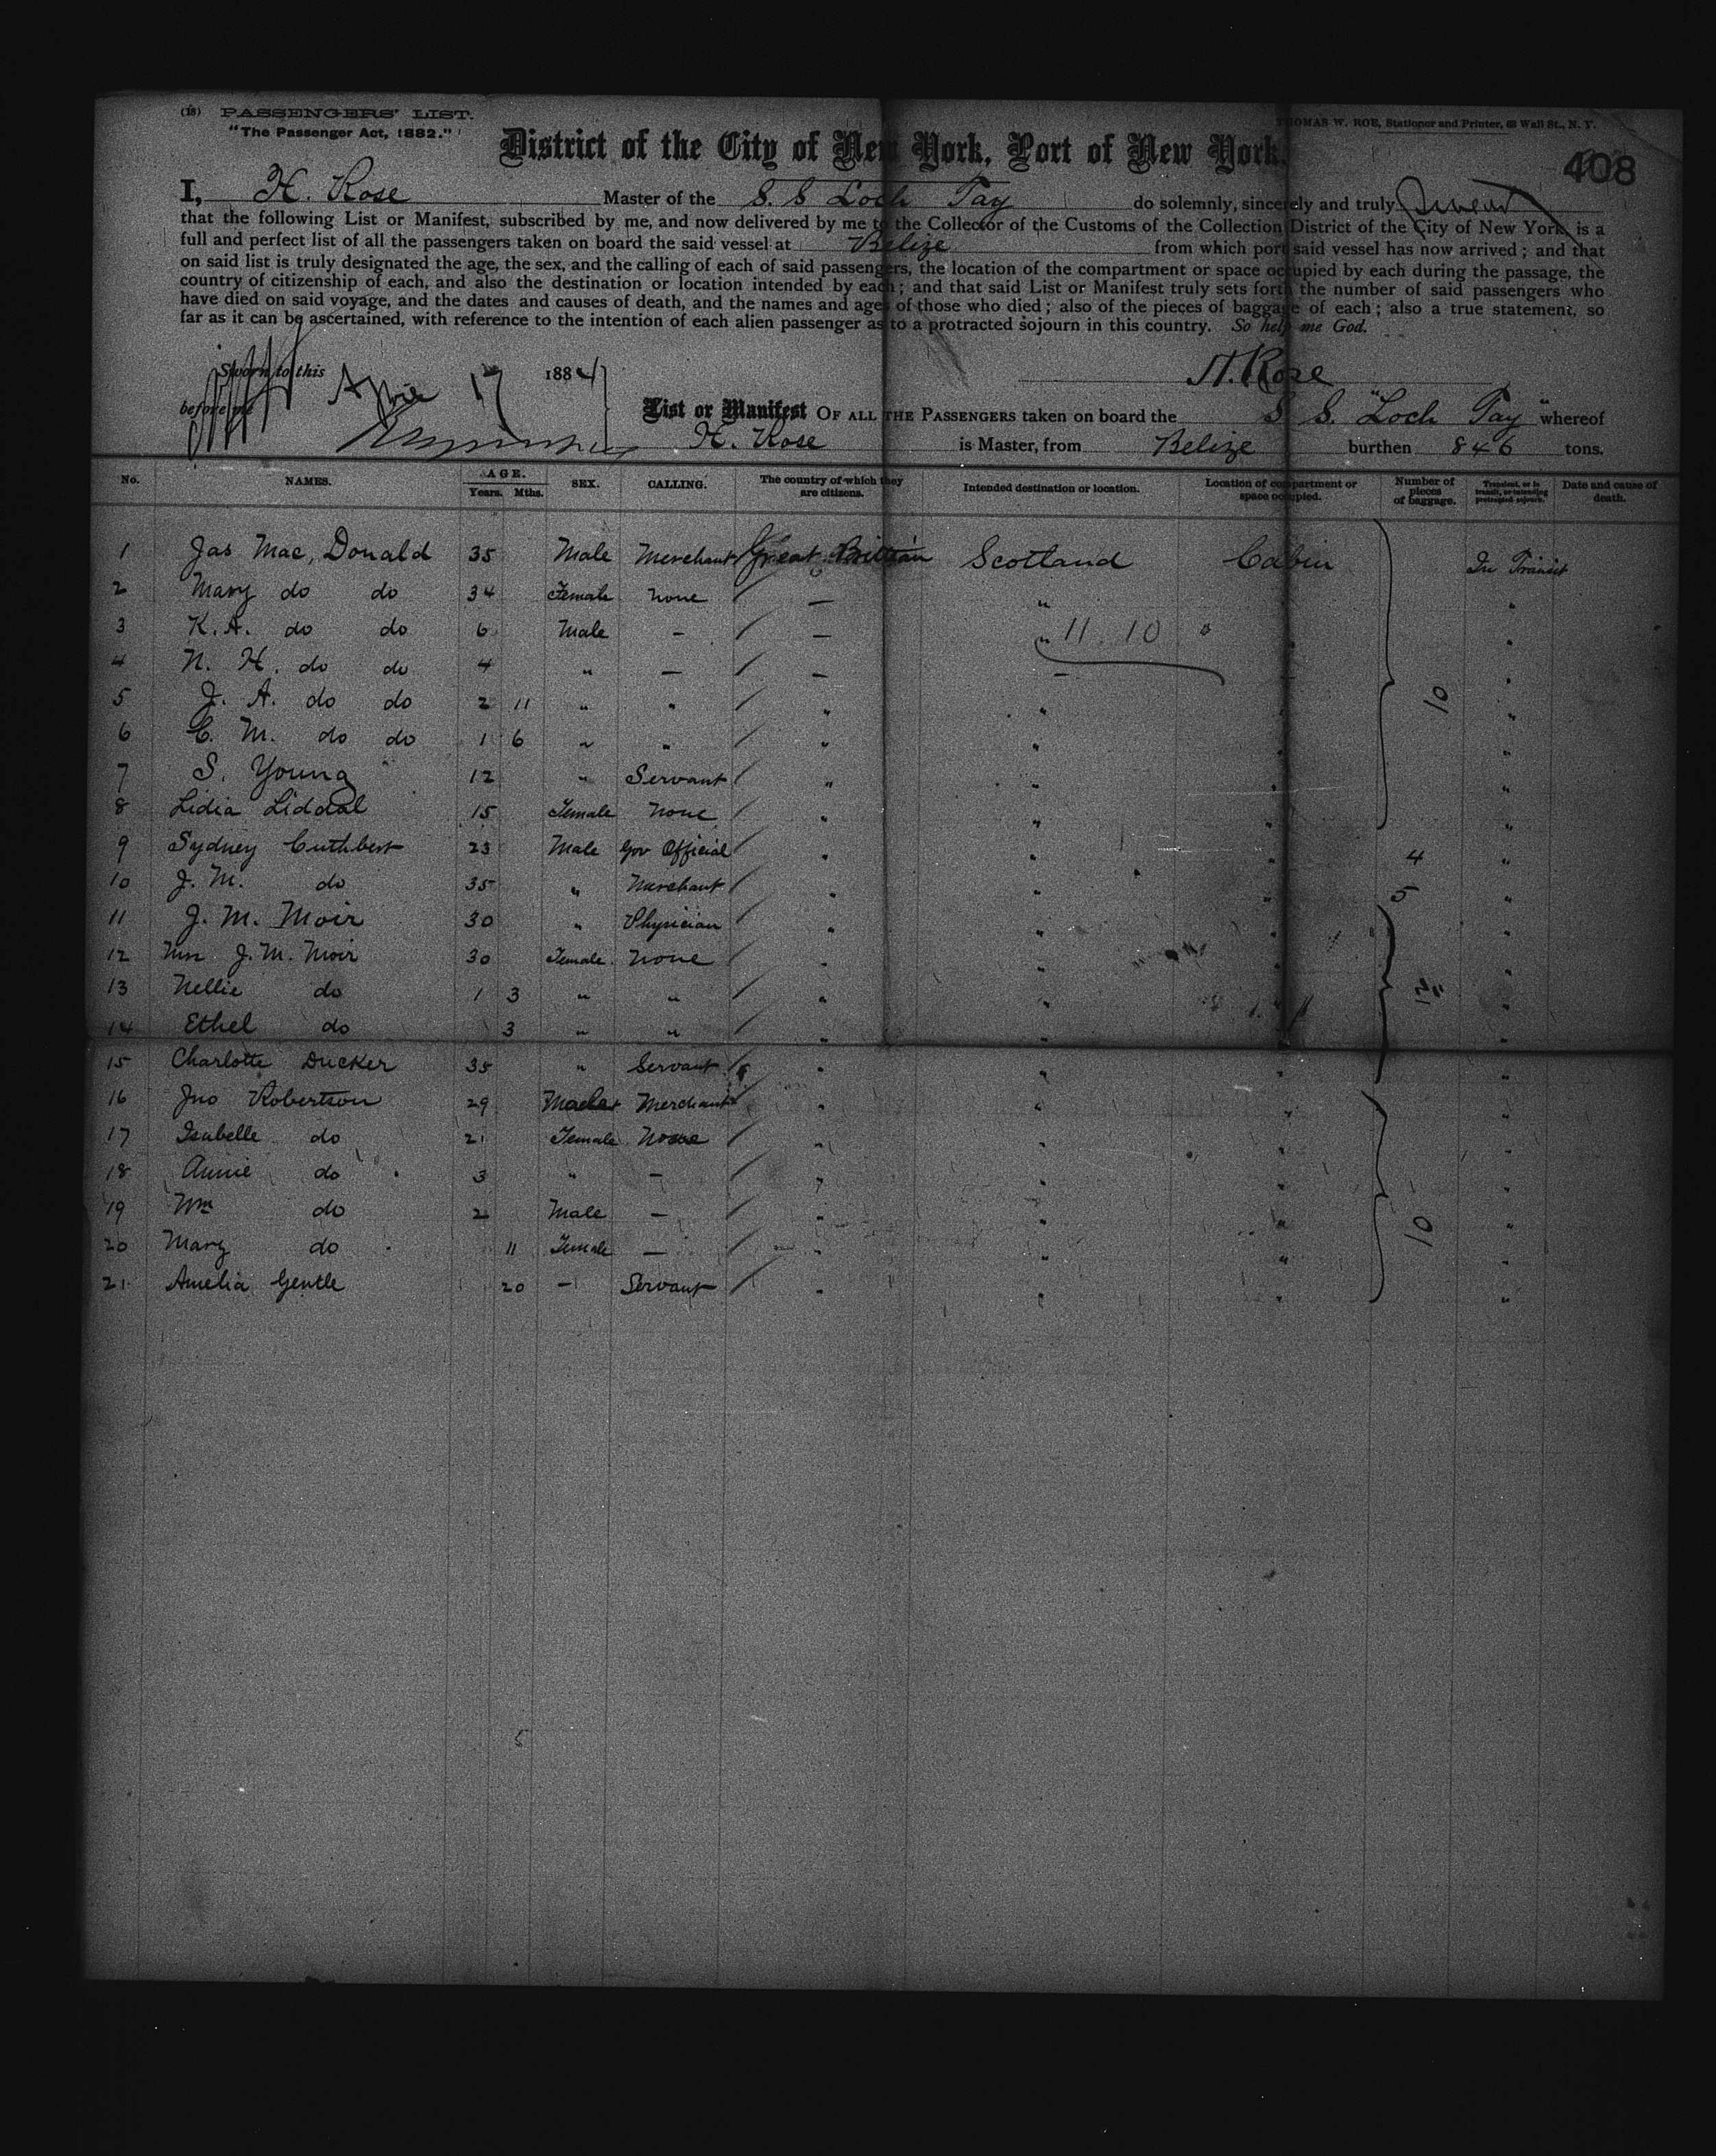 (18) PASSENGERS' LIST.
THOMAS W. ROE, Stationer and Printer, Wall St., N. Y.
"The Passenger Act, 1882."
District of the City of New York, Port of New York.
408
I, H. Rose Master of the S. S Loch Tay do solemnly, sincerely and truly swear
that the following List or Manifest, subscribed by me, and now delivered by me to the Collector of the Customs of the Collection District of the City of New York, is a
full and perfect list of all the passengers taken on board the said vessel at Belize from which port said vessel has now arrived; and that
on said list is truly designated the age, the sex, and the calling of each of said passengers, the location of the compartment or space occupied by each during the passage, the
country of citizenship of each, and also the destination or location intended by each; and that said List or Manifest truly sets forth the number of said passengers who
have died on said voyage, and the dates and causes of death, and the names and ages of those who died; also of the pieces of baggage of each; also a true statement, so
far as it can be ascertained, with reference to the intention of each alien passenger as to a protracted sojourn in this country. So help me God.
Sworn to this April 17 1884
H. Rose
before me
List or Manifest OF ALL THE PASSENGERS taken on board the S. S. "Loch Tay" whereof
H. Rose is Master, from Belize burthen 846 tons.
No. NAMES. AGE. Years. Mths. SEX. CALLING. The country of which they are citizens. Intended destination or location. Location of compartment or space occupied. Number of pieces of baggage. Transient, or in transit, or intending protracted sojourn. Date and cause of death.
1 Jas Mac, Donald 35 Male Merchant Great Brittian Scotland Cabin In Transit
2 Mary do do 34 Female None — " "
3 K. A. do do 6 Male - — " 11.10 " "
4 N. H. do do 4 " — — – "
5 J. A. do do 2 11 " " " " " 10 "
6 C. M. do do 1 6 " " " " " "
7 S. Young 12 " Servant " " " "
8 Lidia Liddal 15 Female None " " " "
9 Sydney Cuthbert 23 Male Gov Official " " " 4 "
10 J. M. do 35 " Merchant " " " 5 "
11 J. M. Moir 30 " Physician " " " "
12 Mrs J. M. Moir 30 Female None " " " "
13 Nellie do 1 3 " " " " "
14 Ethel do 3 " " " " " "
15 Charlotte Ducker 35 " Servant " " " "
16 Jno Robertson 29 Male Merchant " " " "
17 Isabelle do 21 Female None " " " "
18 Annie do 3 " – " " " "
19 Wm do 2 Male — " " " 10 "
20 Mary do 11 Female — " " " "
21 Amelia Gentle 20 – Servant " " " "